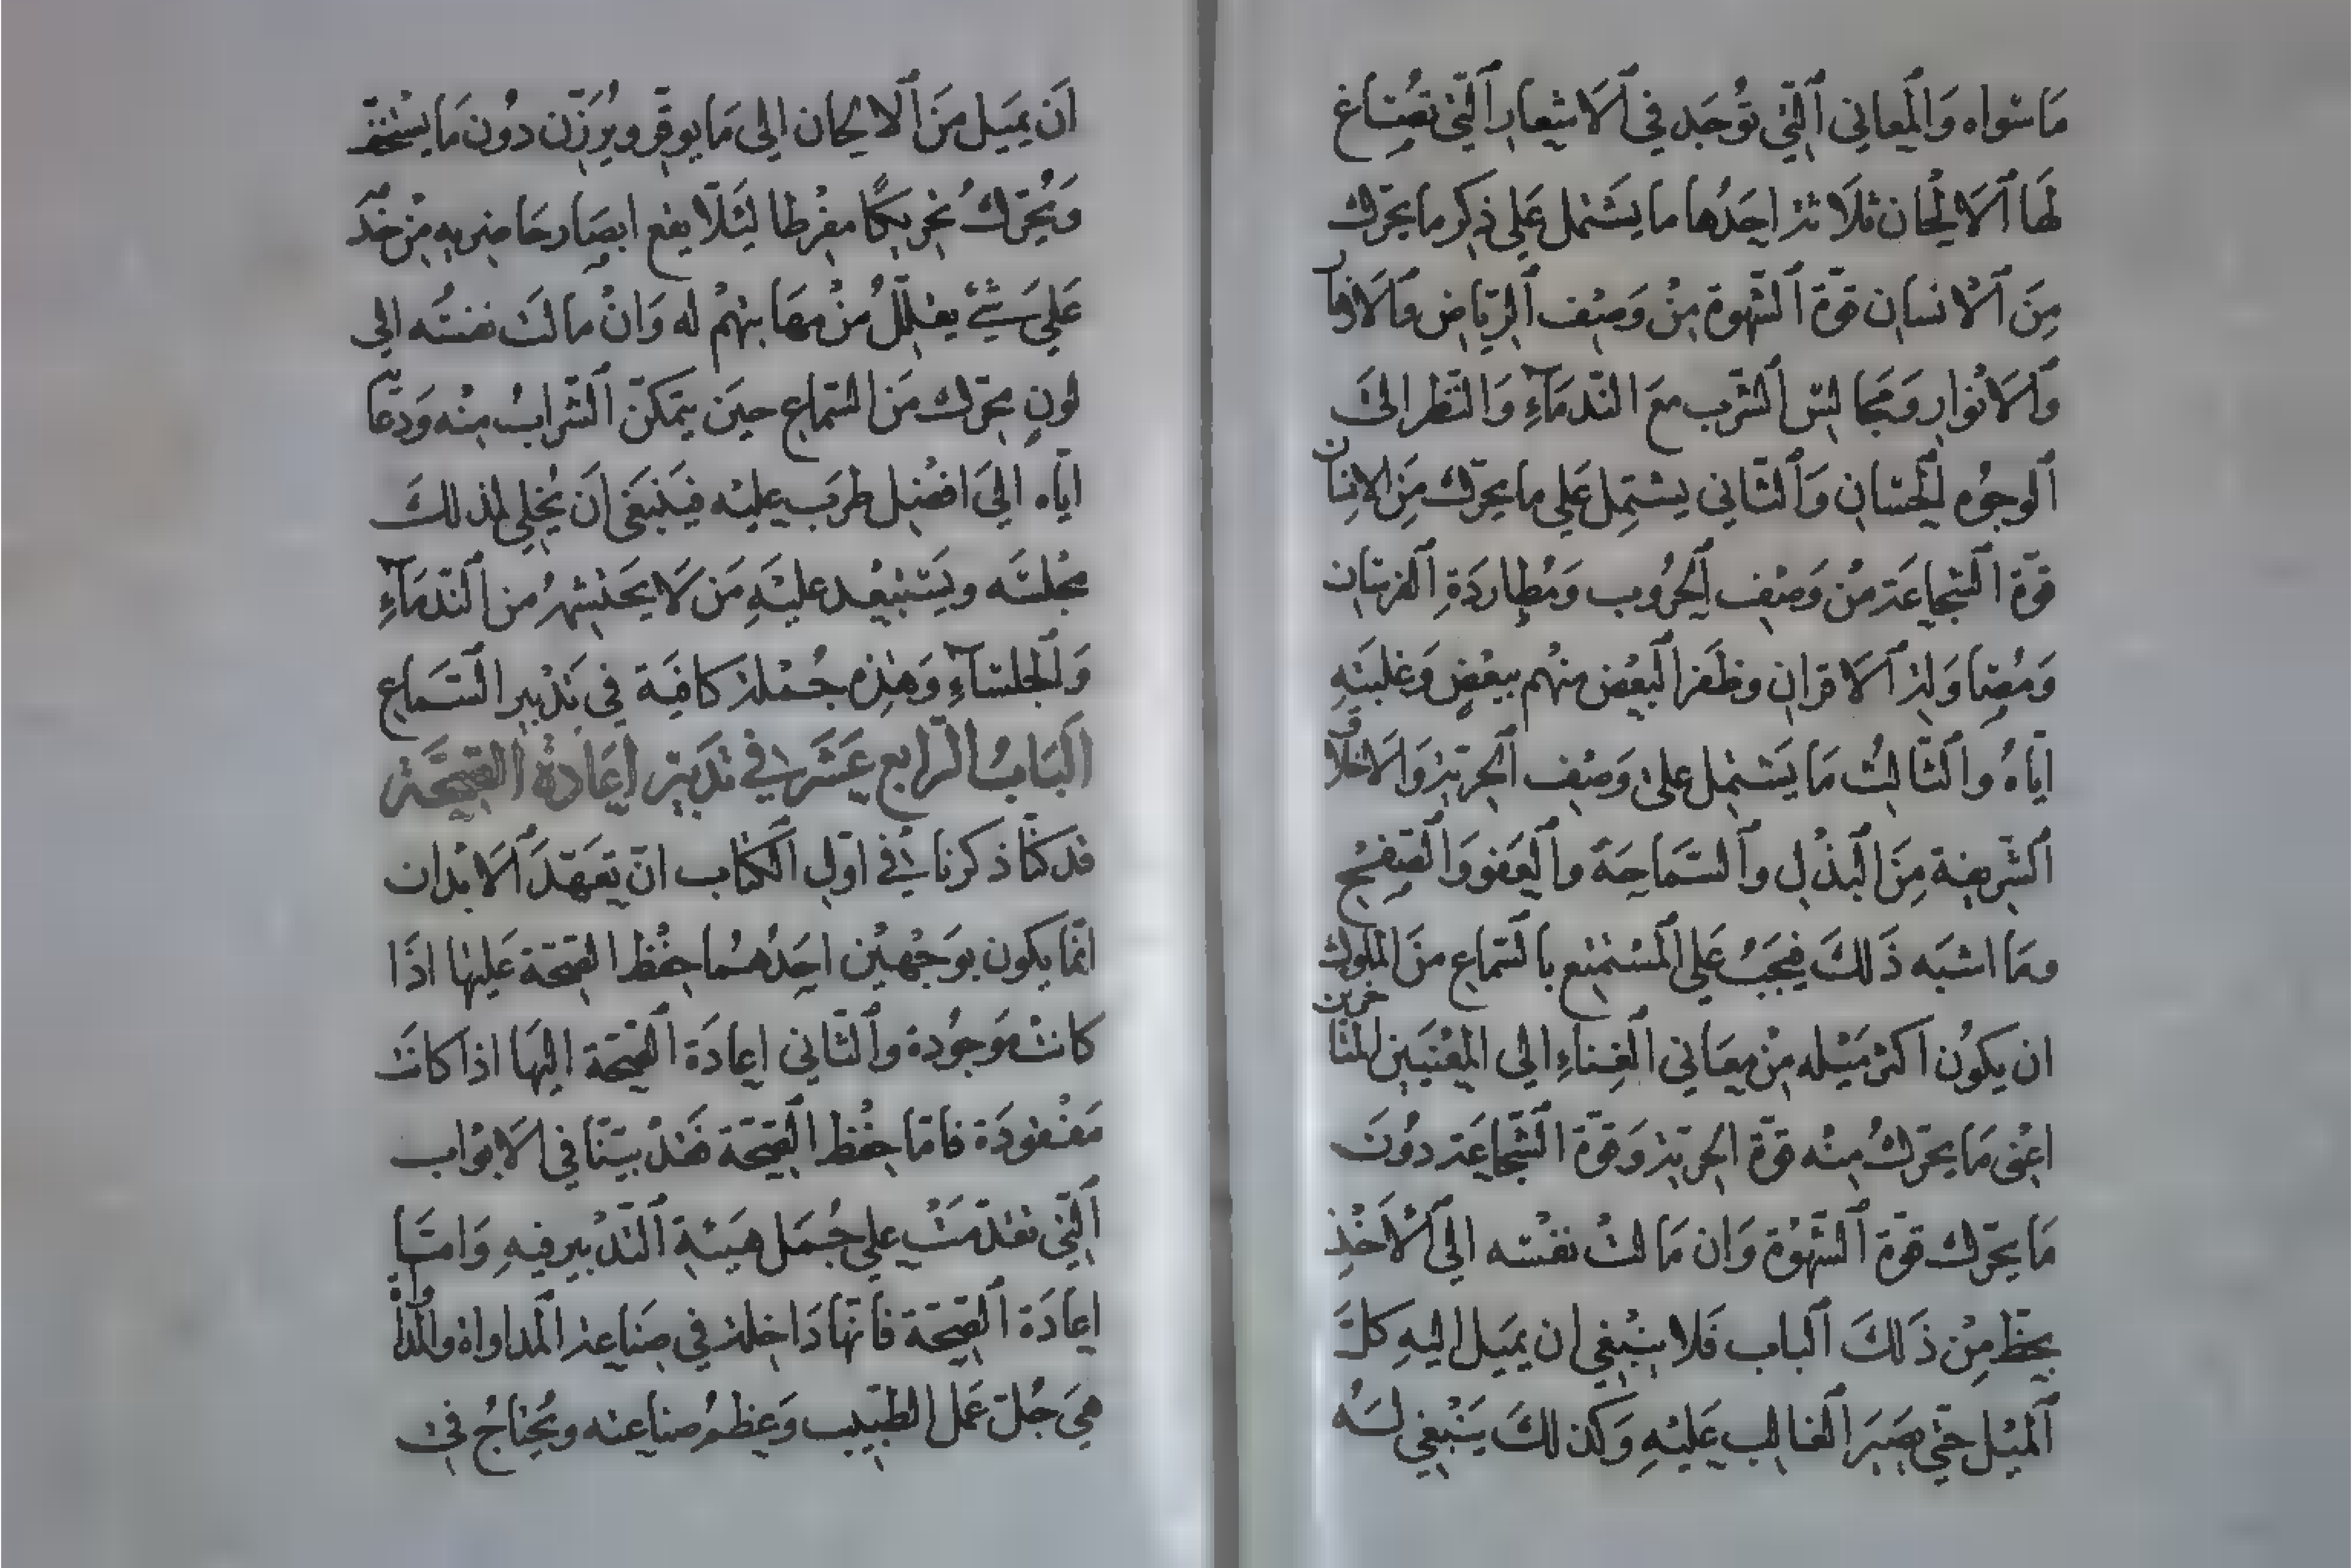 مَا سواه وَالمعاني ٱلتي تُوجَد في ٱلاشعار ٱلتي تصُاغ
لهَا ٱلالحان ثلَاثة احَدُها ما يشتمل عَلى ذكر ما يحرّك
مِنَ ٱلانسان قوّة ٱلشّهوة مِنْ وَصْف ٱلرّياض وٱلازهار
وَٱلانْوار وَمجَالس ٱلشّرب معَ النّدمَآءِ وَالنّظر الىَ
ٱلوجُوه ٱلحسَان وَٱلثّاني يشتمِل عَلى ما يحرّك مِنَ الانسان
قوّة ٱلشجاعَة مِنْ وَصْف ٱلحرُوب وَمُطاردَةِ ٱلفرسَان
وَمُصَاوَلة ٱلاقران وظَفر ٱلبَعْض منهُم ببعْضٍ وَغلبتهِ
ايّاهُ وٱلثّالثُ مَا يَشتمل علىٰ وَصْف ٱلحريّة وَالاخلاق
ٱلشّريفة مِنَ ٱلبذْل وٱلسّمَاحَة وٱلعَفو وَٱلصّفح
ومَا اشبَه ذَلكَ فيجَبُ عَلى ٱلمسْتمتع بٱلسّماع منَ الملوك
ان يكوُن اكثر مَيْله مِنْ معَاني ٱلغِناءِ الى المغنيَين
اعْنى مَا يحرّكُ مِنْه قوّة ٱلحريّة وَقوّة ٱلشّجاعَة دوُنَ
مَا يحرّك قوّة ٱلشّهْوة وَان مَالتْ نفسْه الى ٱلاخْذ
بحظّ مِنْ ذَلكَ ٱلباب فلَا ينبْغي ان يميَل اليهِ كلّ
ٱلميْل حتّى يصَيرَ ٱلغالب عَليْهِ وَكذلكَ يَنبْغي لَهُ
اَن يميَل مِنَ ٱلالحان الى مَا يوقّر ويُرَزّن دوُن مَا يسْتخفّ
وَيُحَرّك تحْريكًا مفْرطا لئَلّا يقع ابصَار حَاضريهِ مِنْ خدَم
عَلىَ شَيْءٍ يقلّلُ مِنْ مهَابتهمْ له وَانْ مالتَ نفسُه الى
لونٍ محرّك منَ السّماع حينَ يتمكّن ٱلشّرابُ مِنْه وَدعَا
ايّاه الىَ افضْل طرَب عليْه فيَنبغَى اَن يُخلي لذلكَ
مجْلسَه ويَسَتبْعد عليْهِ مَن لَا يحَتشمُ من ٱلنّدمَآءِ
وَٱلجلسَآءِ وَهذِه جُمْلة كافيَة في تدَبير ٱلسّمَاع
ٱلبَابُ الرّابع عَشَر في تدَبير اعَادة ٱلصّحَّة
قد كنّا ذكرنا في اوّل ٱلكتاب انّ تعَهّدَ ٱلابْدان
انّما يكون بوَجْهيْن احَدهُما حفْظ ٱلصّحّة عَليْها اذَا
كانتْ موَجوُدة وٱلثّاني اعادَة ٱلصّحّة اليهَا اذا كانتَ
مَفْقودَة فامّا حفْظ ٱلصّحّة فقَدْ بيّنّا في الابوْاب
ٱلتي تقدّمَتْ على جُمَل هيَئة ٱلتّدْبير فيهِ وَامّا
اعادَة ٱلصّحّة فانّها دَاخلة في صناعة ٱلمداواة والمداواة
هيَ جُلّ عَمَل الطّبيب وَعظمُ صناعته ويُحْتاجُ في